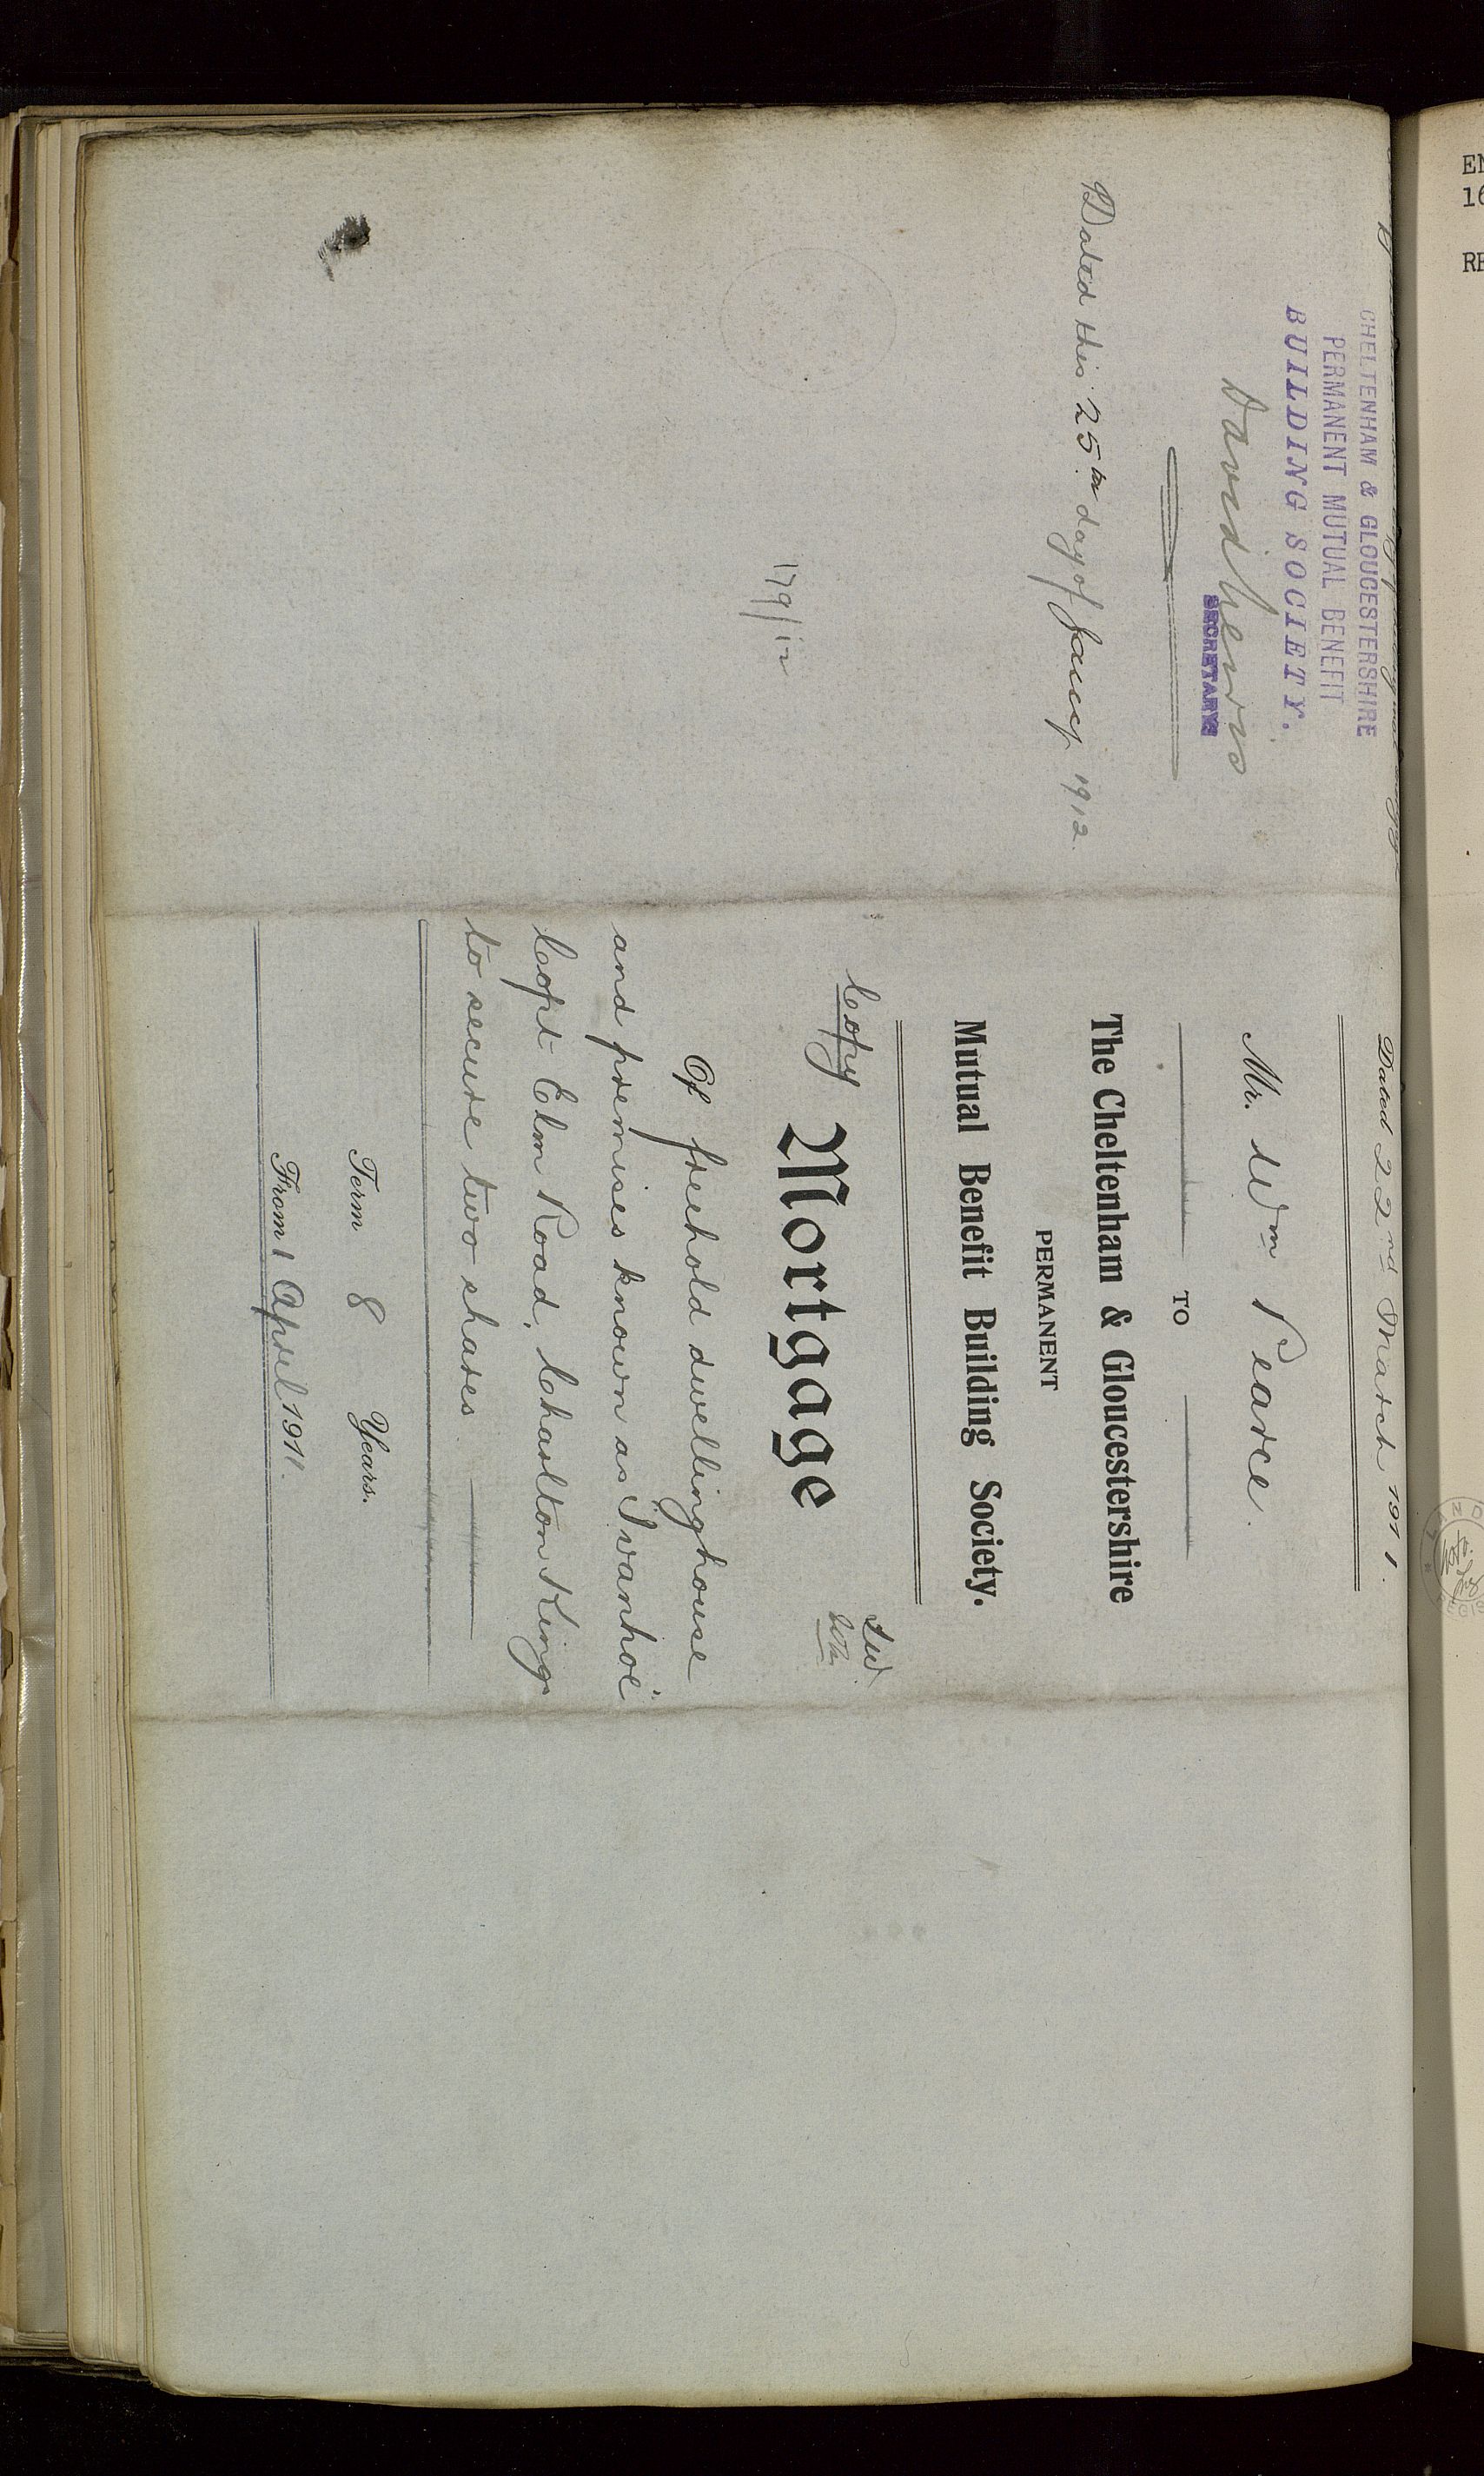 CHELTENHAM & GLOUCESTERSHIRE
PERMANENT MUTUAL BENEFIT
BUILDING SOCIETY.
David
SECRETARY
Dated this 25th day of Jany 1912
179/12
Dated 22nd March 1911.
Mr. Wm Pearce.
TO
The Cheltenham & Gloucestershire
PERMANENT
Mutual Benefit Building Society.
Copy Mortgage
Of freehold dwellinghouse
and premises known as Ivanhoe
Copt Elm Road, Charlton Kings
to secure two shares
Term 8 Years.
From 1 April 1911.